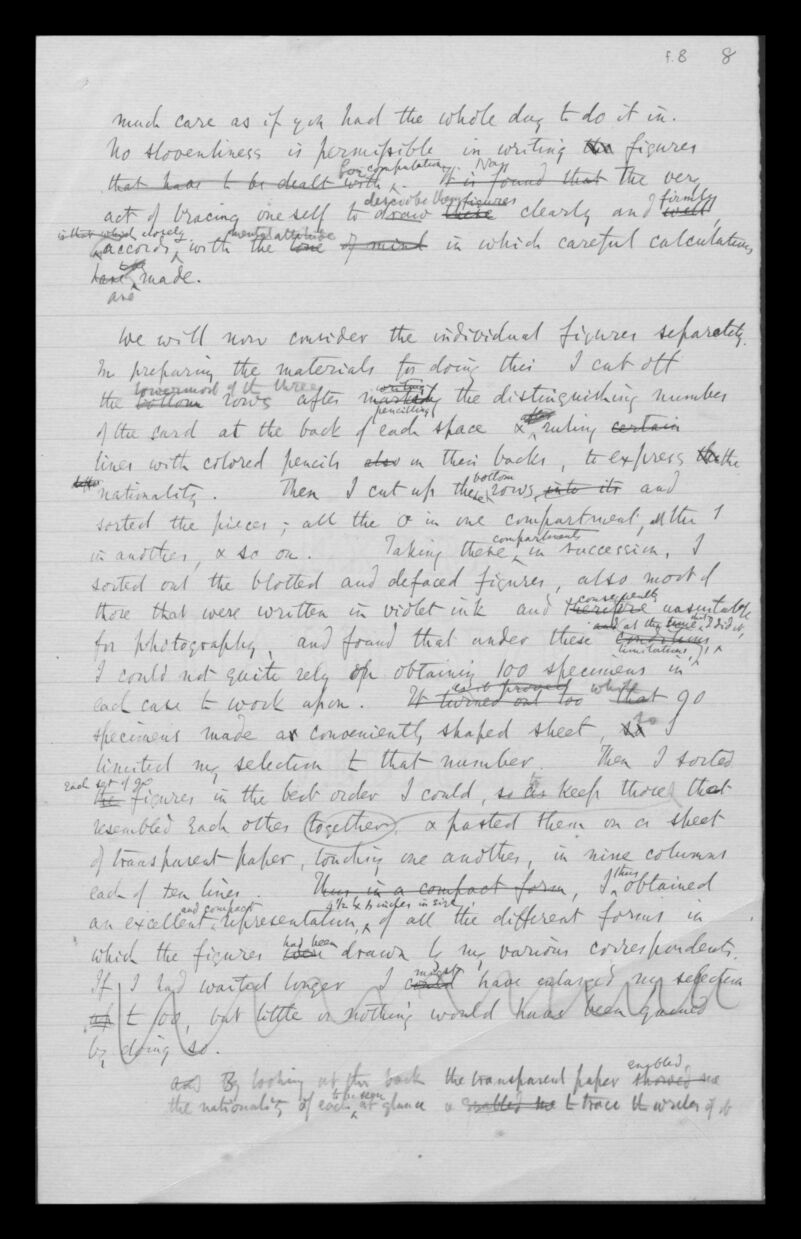 f. 8 8
much care as if you had the whole day to do it in.
No slovenliness is permissible in writing the figures
for computation. Nay
that have to be dealt with. It is found that the very
describe these figures firmly
act of bracing oneself to draw these clearly and well,
is that which closely mental attitude
accords, with the tone of mind in which careful calculations
have made.
are
We will now consider the individual figures separately.
In preparing the materials for doing this I cut off
lowermost of the three writing
the bottom rows after marking the distinguishing number
pencilling after
of the card at the back of each space & ruling certain
lines with colored pencils also on their backs, to express the
bottom
nationality. Then I cut up these rows, into its and
sorted the pieces; all the 0 in one compartment, all the 1
compartments
in another, & so on. Taking these in succession, I
sorted out the blotted and defaced figures, also most of
consequently
those that were written in violet ink and therefore unsuitable
and at the time that I did it,
for photography, and found that under these conditions
limitations,
I could not quite rely on obtaining 100 specimens in
as it proved while
each case to work upon. It turned out too that 90
so
specimens made a conveniently shaped sheet, so I
limited my selection to that number. Then I sorted
each set of 90 to
the figures in the best order I could, so as keep those that
resembled each other together, & pasted them on a sheet
of transparent paper, touching one another, in nine columns
thus
each of ten lines. Thus in a compact form, I obtained
and compact inches in size,
an excellent representation, of all the different forms in
had been
which the figures were drawn by my various correspondents.
might
If I had waited longer I could have enlarged my selection
up to 100, but little or nothing would have been gained
by doing so.
enabled
and By looking at the back the transparent paper showed me
to be seen
the nationality of each at glance & enabled me to trace the writer of it